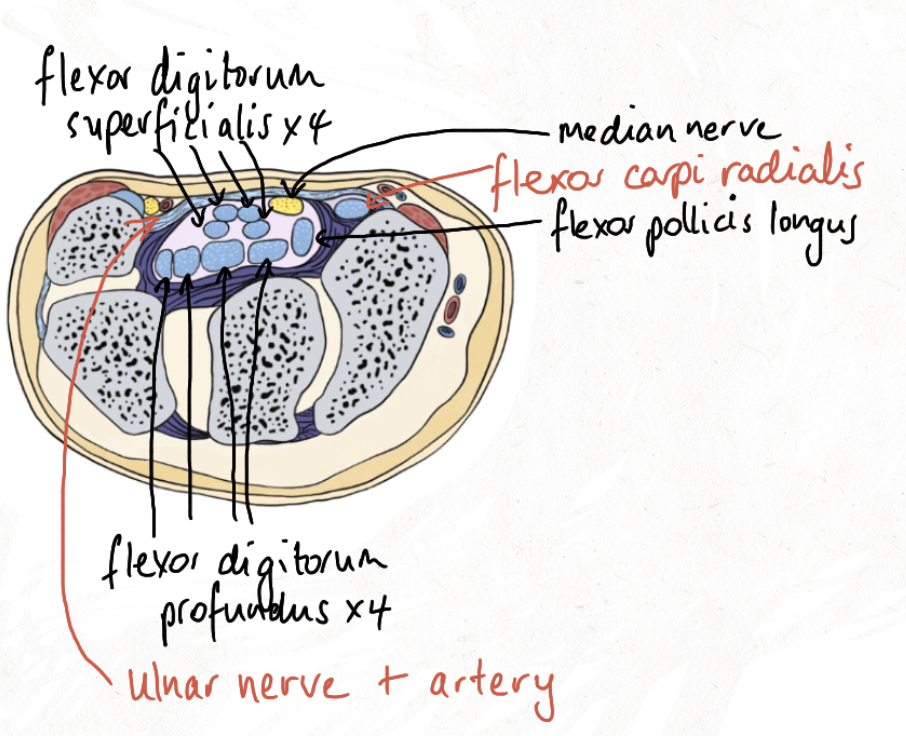 flexor digitorum
superficialis x4
median nerve
flexor carpi radialis
flexor pollicis longus
flexor digitorum
profundus x4
Ulnar nerve + artery